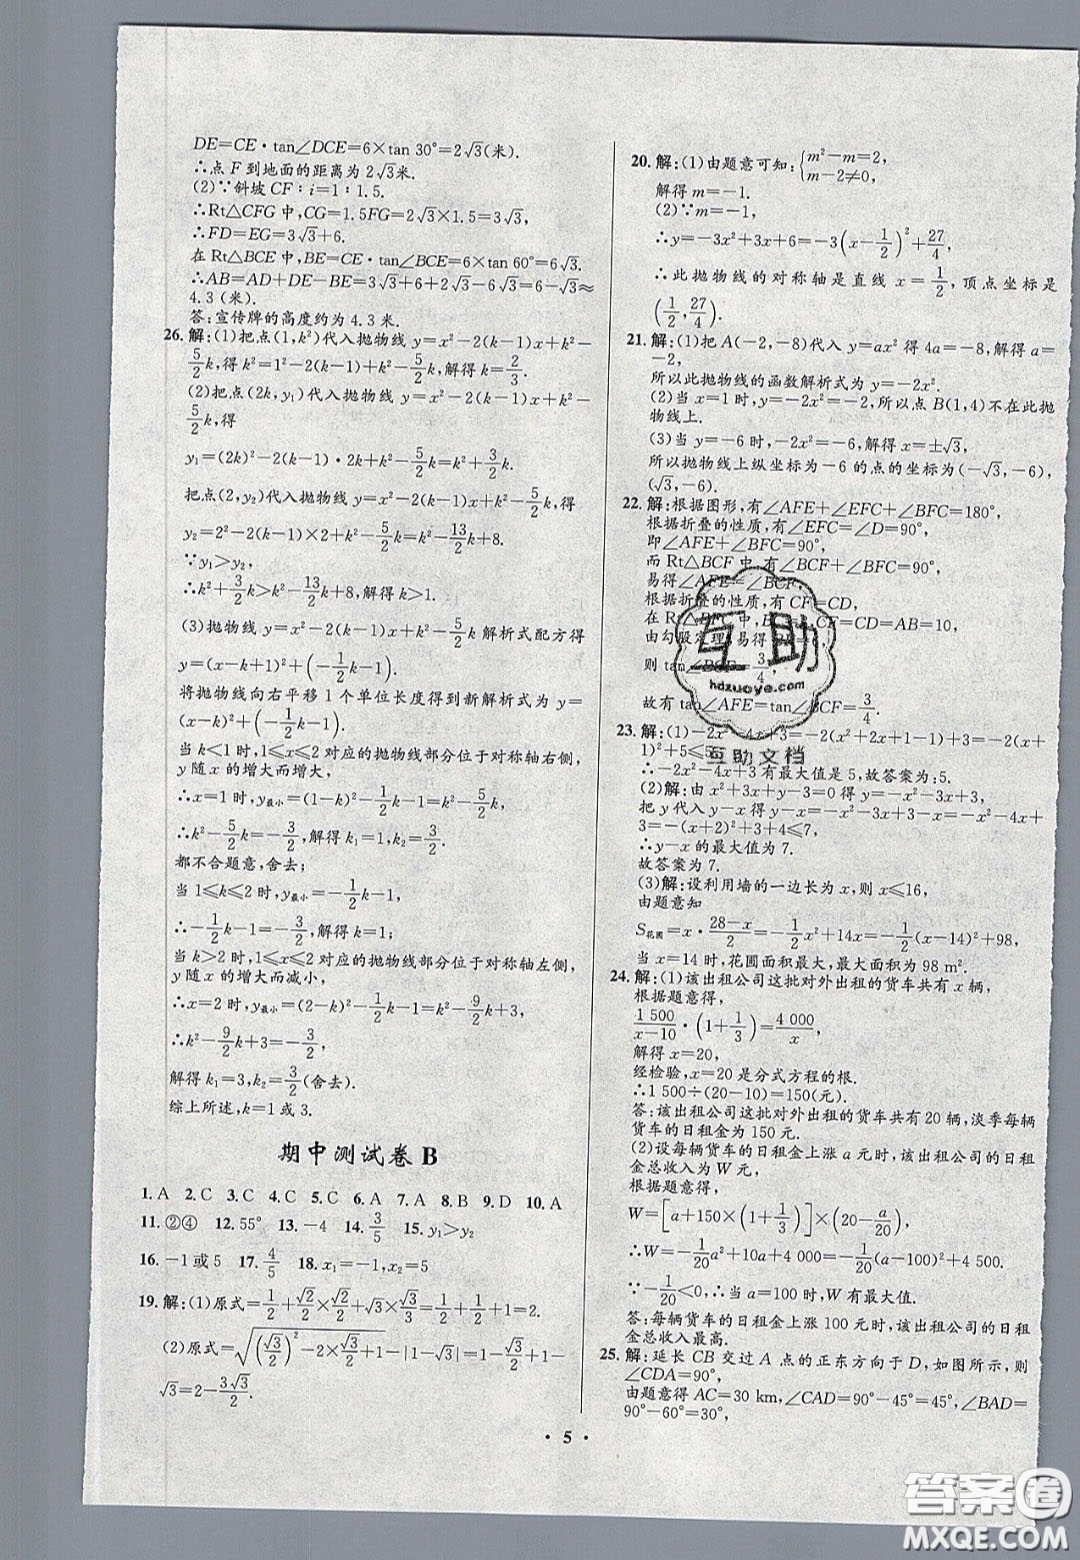 DE=CE·tan∠DCE=6×tan 30°=2√3(米).
∴点 F 到地面的距离为 2√3米.
(2)∵斜坡 CF∶i=1∶1.5.
∴Rt△CFG 中,CG=1.5FG=2√3×1.5=3√3,
∴FD=EG=3√3+6.
在 Rt△BCE 中,BE=CE·tan∠BCE=6×tan 60°=6√3.
∴AB=AD+DE-BE=3√3+6+2√3-6√3=6-√3≈
4.3 (米).
答:宣传牌的高度约为 4.3 米.
26. 解:(1)把点(1,k²)代入抛物线 y=x²-2(k-1)x+k²-
5/2k,得 k²=1²-2(k-1)+k²-5/2k,解得 k=2/3.
(2)把点(2k,y₁)代入抛物线 y=x²-2(k-1)x+k²-
5/2k,得
y₁=(2k)²-2(k-1)·2k+k²-5/2k=k²+3/2k.
把点(2,y₂)代入抛物线 y=x²-2(k-1)x+k²-5/2k,得
y₂=2²-2(k-1)×2+k²-5/2k=k²-13/2k+8.
∵y₁>y₂,
∴k²+3/2k>k²-13/2k+8,解得 k>1.
(3)抛物线 y=x²-2(k-1)x+k²-5/2k 解析式配方得
y=(x-k+1)²+(-1/2k-1).
将抛物线向右平移 1 个单位长度得到新解析式为 y=
(x-k)²+(-1/2k-1).
当 k<1 时,1≤x≤2 对应的抛物线部分位于对称轴右侧,
y 随 x 的增大而增大,
∴x=1 时,y最小=(1-k)²-1/2k-1=k²-5/2k,
∴k²-5/2k=-3/2,解得 k₁=1,k₂=3/2.
都不合题意,舍去;
当 1≤k≤2 时,y最小=-1/2k-1,
∴-1/2k-1=-3/2,解得 k=1;
当 k>2 时,1≤x≤2 对应的抛物线部分位于对称轴左侧,
y 随 x 的增大而减小,
∴x=2 时,y最小=(2-k)²-1/2k-1=k²-9/2k+3,
∴k²-9/2k+3=-3/2,
解得 k₁=3,k₂=3/2(舍去).
综上所述,k=1 或 3.
期中测试卷 B
1. A 2. C 3. C 4. C 5. C 6. A 7. A 8. B 9. D 10. A
11. ②④ 12. 55° 13. -4 14. 3/5 15. y₁>y₂
16. -1 或 5 17. 4/5 18. x₁=-1,x₂=5
19. 解:(1)原式=1/2+√2/2×√2/2+√3×√3/3=1/2+1/2+1=2.
(2)原式=√((√3/2)²-2×√3/2+1)-|1-√3|=1-√3/2+1-
√3=2-3√3/2.
20. 解:(1)由题意可知:{m²-m=2,
m-2≠0,
解得 m=-1.
(2)∵m=-1,
∴y=-3x²+3x+6=-3(x-1/2)²+27/4,
∴此抛物线的对称轴是直线 x=1/2,顶点坐标是
(1/2,27/4).
21. 解:(1)把 A(-2,-8)代入 y=ax² 得 4a=-8,解得 a=
-2,
所以此抛物线的函数解析式为 y=-2x².
(2)当 x=1 时,y=-2x²=-2,所以点 B(1,4)不在此抛
物线上.
(3)当 y=-6 时,-2x²=-6,解得 x=±√3,
所以抛物线上纵坐标为-6 的点的坐标为(-√3,-6),
(√3,-6).
22. 解:根据图形,有∠AFE+∠EFC+∠BFC=180°,
根据折叠的性质,有∠EFC=∠D=90°,
即∠AFE+∠BFC=90°,
而 Rt△BCF 中,有∠BCF+∠BFC=90°,
易得∠AFE=∠BCF,
根据折叠的性质,有 CF=CD,
在 Rt△BFC 中,BC=8,CF=CD=AB=10,
由勾股定理,易得 BF=6,
则 tan∠BCF=3/4,
故有 tan∠AFE=tan∠BCF=3/4.
23. 解:(1)-2x²-4x+3=-2(x²+2x+1-1)+3=-2(x+
1)²+5≤5,
∴-2x²-4x+3 的最大值是 5,故答案为:5.
(2)解:由 x²+3x+y-3=0 得 y=-x²-3x+3,
把 y 代入 y-x 得 y-x=-x²-3x+3-x=-x²-4x+
3=-(x+2)²+3+4≤7,
∴y-x 的最大值为 7.
故答案为 7.
(3)解:设利用墙的一边长为 x,则 x≤16,
由题意知
S花圃=x·(28-x)/2=-1/2x²+14x=-1/2(x-14)²+98,
当 x=14 时,花圃面积最大,最大面积为 98 m².
24. 解:(1)该出租公司这批对外出租的货车共有 x 辆,
根据题意得,
1 500/(x-10)·(1+1/3)=4 000/x,
解得 x=20,
经检验,x=20 是分式方程的根.
∴1 500÷(20-10)=150(元).
答:该出租公司这批对外出租的货车共有 20 辆,淡季每辆
货车的日租金为 150 元.
(2)设每辆货车的日租金上涨 a 元时,该出租公司的日租
金总收入为 W 元,
根据题意得,
W=[a+150×(1+1/3)]×(20-a/20),
∴W=-1/20a²+10a+4 000=-1/20(a-100)²+4 500.
∵-1/20<0,∴当 a=100 时,W 有最大值.
答:每辆货车的日租金上涨 100 元时,该出租公司的日租金
总收入最高.
25. 解:延长 CB 交过 A 点的正东方向于 D,如图所示,则
∠CDA=90°,
由题意得 AC=30 km,∠CAD=90°-45°=45°,∠BAD=
90°-60°=30°,
·5·
互助
hdzuoye.com
互助文档
答案卷
MXQE.COM